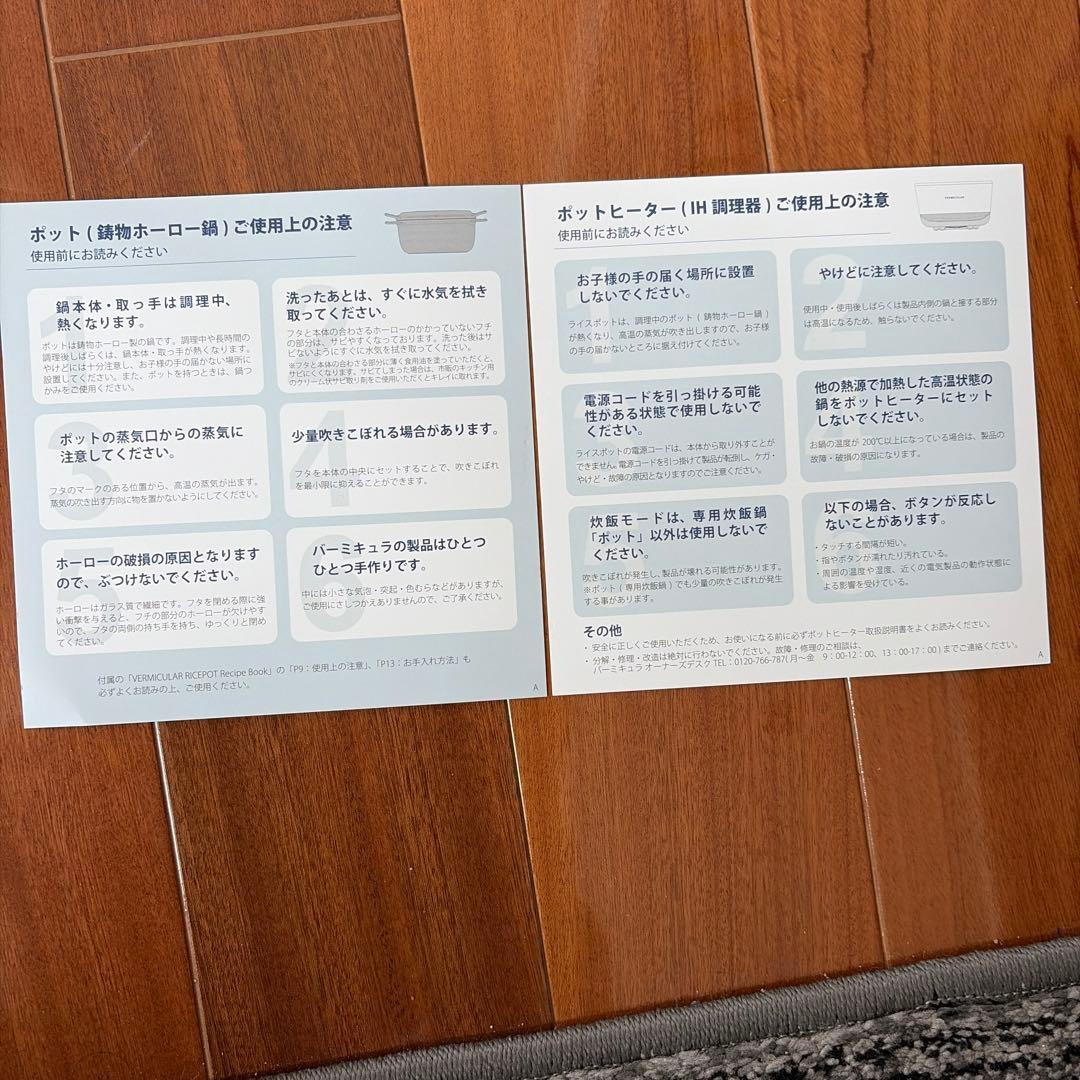 ポット ( 鋳物ホーロー鍋 ) ご使用上の注意
使用前にお読みください
1
鍋本体・取っ手は調理中、
熱くなります。
ポットは鋳物ホーロー製の鍋です。調理中や長時間の
調理後しばらくは、鍋本体・取っ手が熱くなります。
やけどには十分注意し、お子様の手の届かない場所に
設置してください。また、ポットを持つときは、鍋つ
かみをご使用ください。
2
洗ったあとは、すぐに水気を拭き
取ってください。
フタと本体の合わさるホーローのかかっていないフチ
の部分は、サビやすくなっております。洗った後はサ
ビないようにすぐに水気を拭き取ってください。
※フタと本体の合わさる部分に薄く食用油を塗っていただくと、
サビにくくなります。サビてしまった場合は、市販のキッチン用
のクリーム状サビ取り剤をご使用いただくとキレイに取れます。
3
ポットの蒸気口からの蒸気に
注意してください。
フタのマークのある位置から、高温の蒸気が出ます。
蒸気の吹き出す方向に物を置かないようにしてください。
4
少量吹きこぼれる場合があります。
フタを本体の中央にセットすることで、吹きこぼれ
を最小限に抑えることができます。
5
ホーローの破損の原因となります
ので、ぶつけないでください。
ホーローはガラス質で繊細です。フタを閉める際に強
い衝撃を与えると、フチの部分のホーローが欠けやす
いので、フタの両側の持ち手を持ち、ゆっくりと閉め
てください。
6
バーミキュラの製品はひとつ
ひとつ手作りです。
中には小さな気泡・突起・色むらなどがありますが、
ご使用にさしつかえありませんので、ご了承ください。
付属の「VERMICULAR RICEPOT Recipe Book」の「P9：使用上の注意」、「P13：お手入れ方法」も
必ずよくお読みの上、ご使用ください。
A
ポットヒーター ( IH 調理器 ) ご使用上の注意
使用前にお読みください
VERMICULAR
1
お子様の手の届く場所に設置
しないでください。
ライスポットは、調理中のポット ( 鋳物ホーロー鍋 )
が熱くなり、高温の蒸気が吹き出しますので、お子様
の手の届かないところに据え付けてください。
2
やけどに注意してください。
使用中・使用後しばらくは製品内側の鍋と接する部分
は高温になるため、触らないでください。
電源コードを引っ掛ける可能
性がある状態で使用しないで
ください。
ライスポットの電源コードは、本体から取り外すことが
できません。電源コードを引っ掛けて製品が転倒し、ケガ・
やけど・故障の原因となりますのでご注意ください。
4
他の熱源で加熱した高温状態の
鍋をポットヒーターにセット
しないでください。
お鍋の温度が 200℃以上になっている場合は、製品の
故障・破損の原因になります。
炊飯モードは、専用炊飯鍋
「ポット」以外は使用しないで
ください。
吹きこぼれが発生し、製品が壊れる可能性があります。
※ポット ( 専用炊飯鍋 ) でも少量の吹きこぼれが発生
する事があります。
以下の場合、ボタンが反応し
ないことがあります。
・タッチする間隔が短い。
・指やボタンが濡れたり汚れている。
・周囲の温度や湿度、近くの電気製品の動作状態に
よる影響を受けている。
その他
・安全に正しくご使用いただくため、お使いになる前に必ずポットヒーター取扱説明書をよくお読みください。
・分解・修理・改造は絶対に行わないでください。故障・修理のご相談は、
バーミキュラ オーナーズデスク TEL : 0120-766-787( 月～金　9：00-12：00、13：00-17：00 ) までご連絡ください。
A